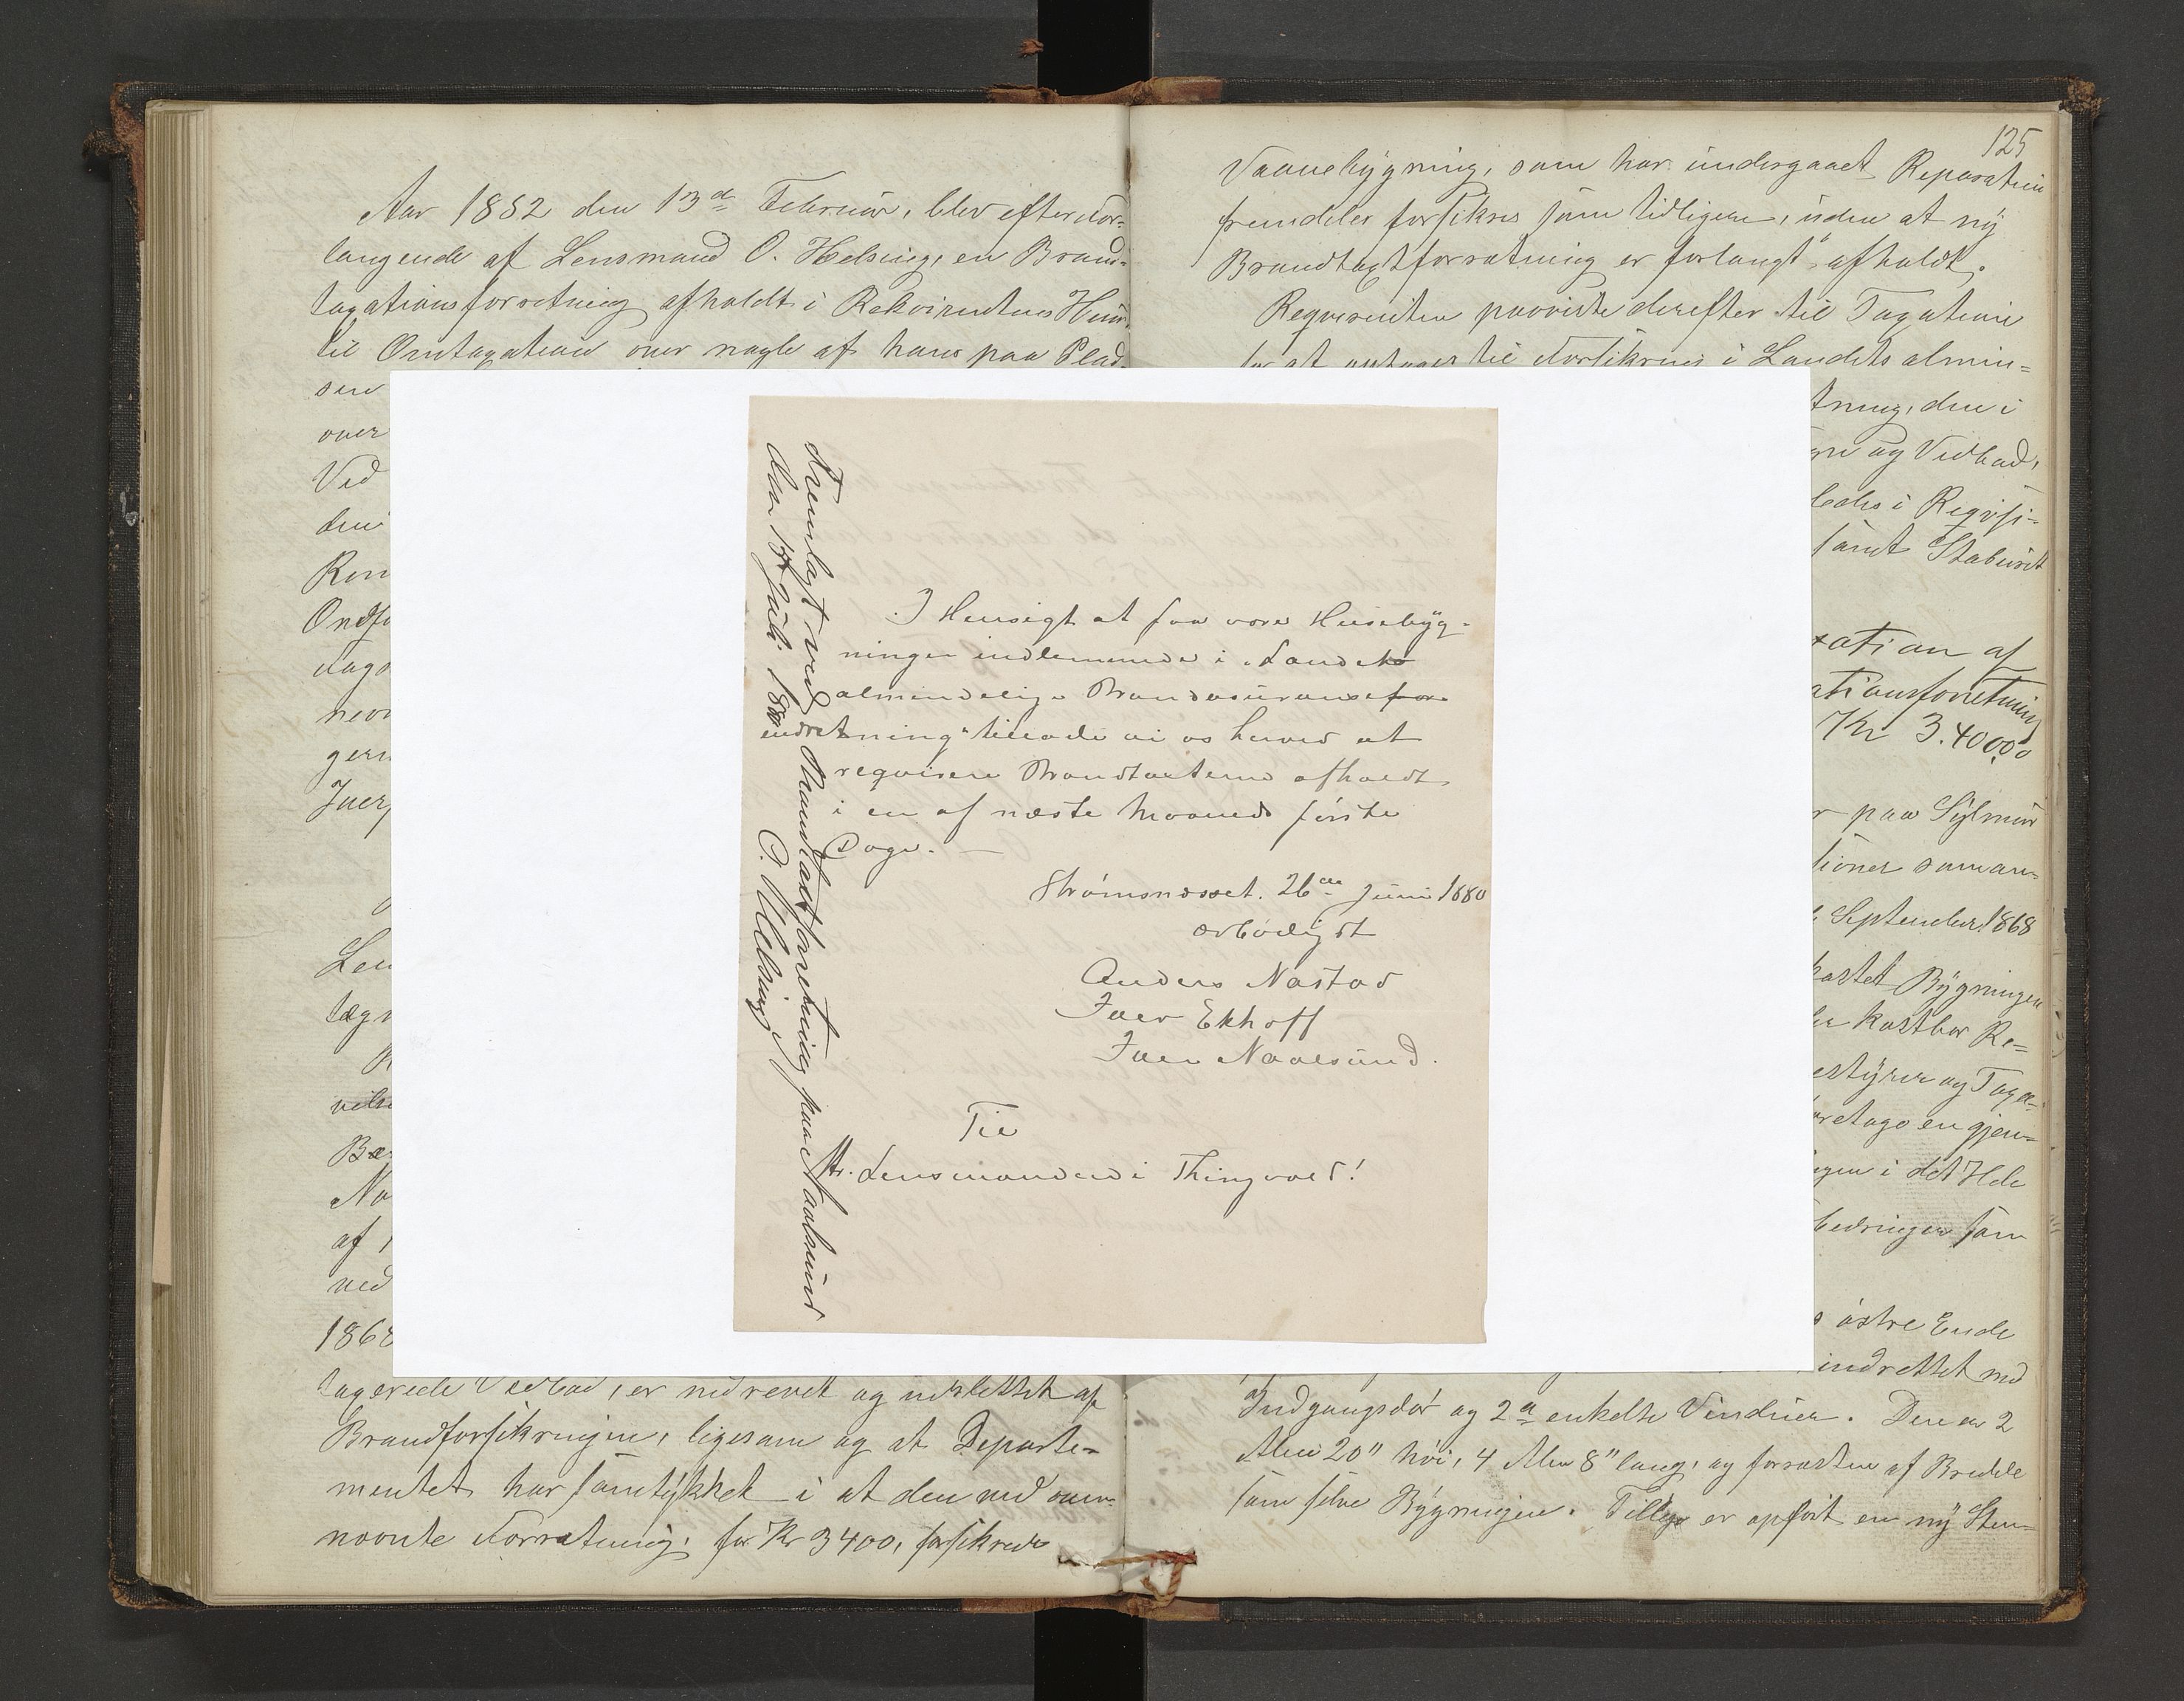 Aar 1882 den 13de Februar, blev efter For-
langende af Lensmand O. Helsing, en Brand-
taxationsforretning afholdt i Rekvirentens Huus
til Omtaxation over nogle af hans paa Plad-
sen
over
Ved
den
Ren
Ondf
dags
nevn
gern
Iver
Len
lægn
vilse
Bæ
No
af
ved
1868
taxerede Vedbod, er nedrevet og udslettet af
Brandforsikringen, ligesom og at Departe-
mentet har samtykket i at den ved oven-
nævnte Forretning, for Kr 3400, forsikrede
125
Vaanebygning, som har undergaaet Reparation
fremdeles forsikres som tidligere, uden at ny
Brandtaxtforretning er forlangt afholdt.
Reqvirenten paaviste derefter til Taxation
for at optages til Forsikring i Landets almin-
tning, den i
og Vedbod,
ledes i Reqvisi-
samt Staburet
xation af
ationsforretning
Kr 3.400,00
r paa Sylmur
tioner saman-
September 1868
kastet Bygningen
kostbar Re-
estyrer og Taxa-
foretage en gjen-
ngen i det Hele
bedringer som
s østre Ende
indrettet med
Indgangsdør og 2 enkelte Vinduer. Den er 2
Alen 20" høi, 4 Alen 8" lang, og forresten af Bredde
som selve Bygningen. Tillige er opført en ny Sten-
I Hensigt at faa vore Husebyg-
ninger indlemmede i "Landets
almindelige Brandasurancefor-
indretning" tillade vi os herved at
reqvirere Brandtaxterne afholdt
i en af næste Maaneds første
Dage. —
Strømsnæsset. 26de Juni 1880
ærbødigst
Anders Nastad
Iver Ekhoff
Iver Naalsund.
Til
Hr. Lensmanden i Thingvold!
Fremlagt ved Brandtaxtforretning paa Naalsund
den 14 Juli 1880
O. Helsing